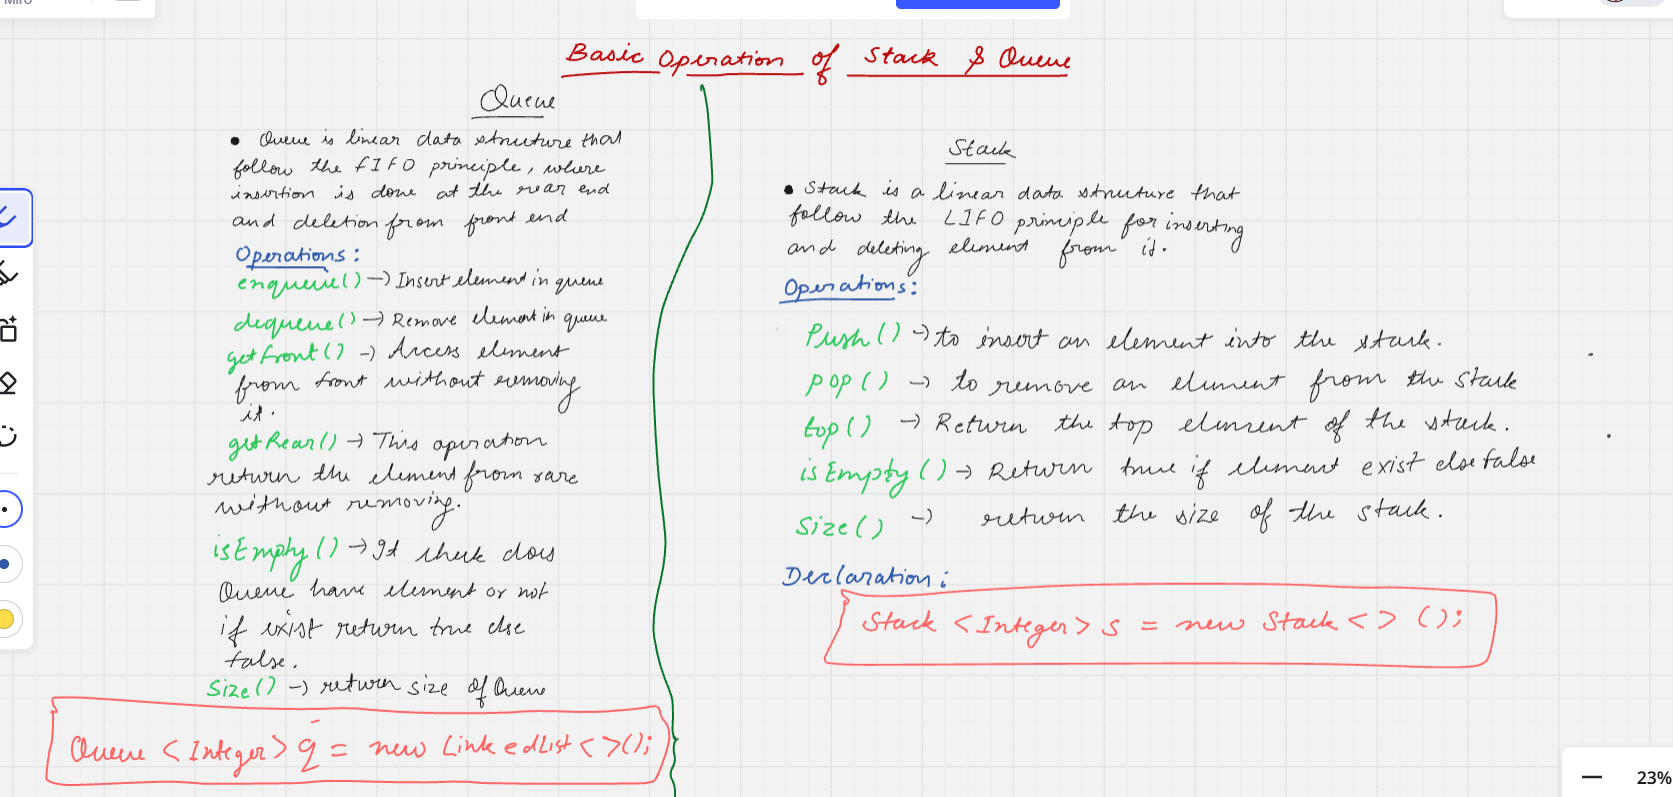 Basic Operation of Stack & Queue
Queue
• Queue is linear data structure that
follow the FIFO principle, where
insertion is done at the rear end
and deletion from front end
Operations:
enqueue() → Insert element in queue
dequeue() → Remove element in queue
getfront() → Access element
from front without removing
it.
getRear() → This operation
return the element from rare
without removing.
isEmpty() → It check does
Queue have element or not
if exist return true else
false.
Size() → return size of Queue
Queue <Integer> q = new LinkedList <>();
Stack
• Stack is a linear data structure that
follow the LIFO principle for inserting
and deleting element from it.
Operations:
Push() → to insert an element into the stack.
pop() → to remove an element from the stack
top() → Return the top element of the stack.
isEmpty() → Return true if element exist else false
Size() → return the size of the stack.
Declaration:
Stack <Integer> s = new Stack <> ();
23%